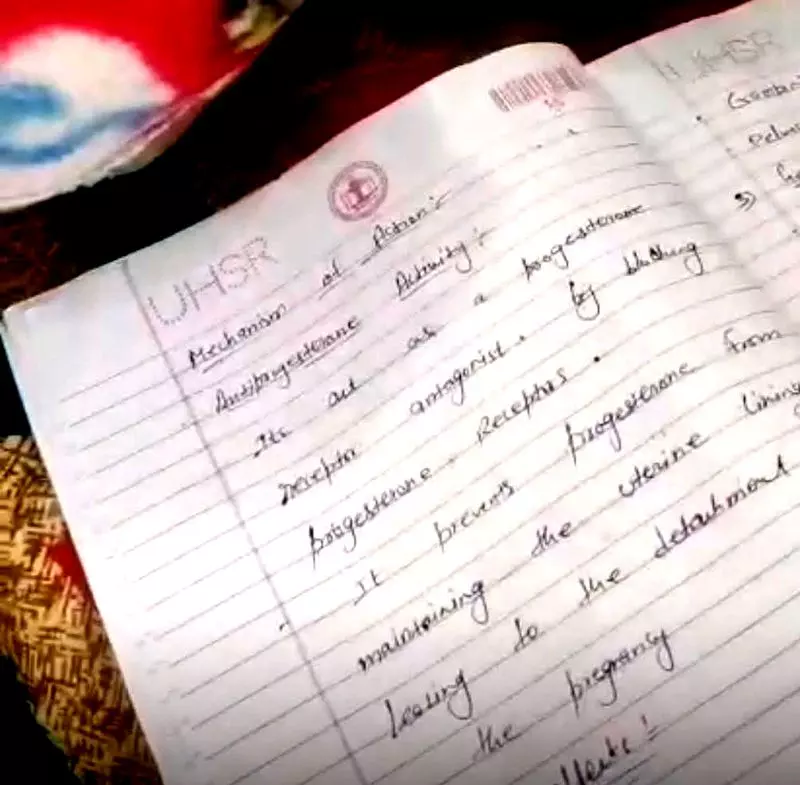 UHSR
Mechanism of Action:-
Antiprogesterone Activity:-
Its act as a progesterone
receptor antagonist. by blocking
progesterone Receptors.
It prevents progesterone from
maintaining the uterine lining
leasing to the detachment
the pregnancy
UHSR
3)